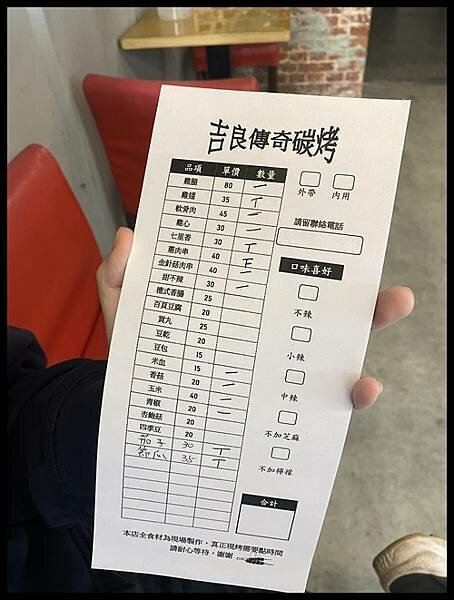 吉良傳奇碳烤
品項 單價 數量
雞腿 80 一
雞翅 35 丅
軟骨肉 45 一
雞心 30 一
七里香 30 丅
蔥肉串 40
金針菇肉串 40 一
甜不辣 30 一
德式香腸 25
百頁豆腐 20
貢丸 25
豆乾 20
豆包 15
米血 15 一
香菇 20 一
玉米 40 一
青椒 20 一
杏鮑菇 20
四季豆 20
茄子 30 丅
節瓜 35 丅
外帶 內用
請留聯絡電話
口味喜好
不辣
小辣
中辣
不加芝麻
不加檸檬
合計
本店全食材為現場製作，真正現烤需要點時間
請耐心等待，謝謝